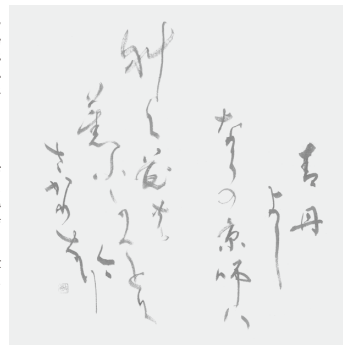 青丹
よし
ならの京師ハ
咲く花の
薫ふかことく
今
さかりなり